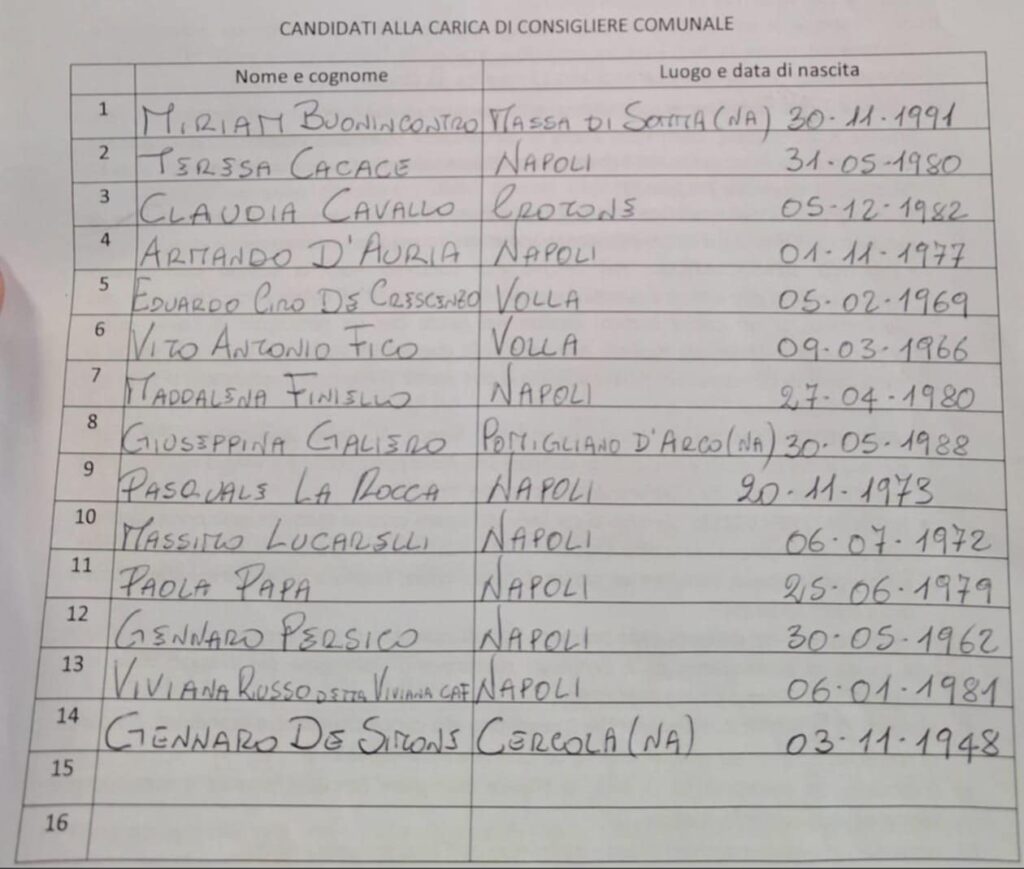 CANDIDATI ALLA CARICA DI CONSIGLIERE COMUNALE
Nome e cognome Luogo e data di nascita
1 MIRIAM BUONINCONTRO MASSA DI SOMMA (NA) 30.11.1991
2 TERESA CACACE NAPOLI 31.05.1980
3 CLAUDIA CAVALLO CROTONE 05.12.1982
4 ARMANDO D'AURIA NAPOLI 01.11.1977
5 EDUARDO CIRO DE CRESCENZO VOLLA 05.02.1969
6 VITO ANTONIO FICO VOLLA 09.03.1966
7 MADDALENA FINIELLO NAPOLI 27.04.1980
8 GIUSEPPINA GALIERO POMIGLIANO D'ARCO (NA) 30.05.1988
9 PASQUALE LA ROCCA NAPOLI 20.11.1973
10 MASSIMO LUCARELLI NAPOLI 06.07.1972
11 PAOLA PAPA NAPOLI 25.06.1979
12 GENNARO PERSICO NAPOLI 30.05.1962
13 VIVIANA RUSSO DETTA VIVIANA CAF NAPOLI 06.01.1981
14 GENNARO DE SIMONE CERCOLA (NA) 03.11.1948
15
16